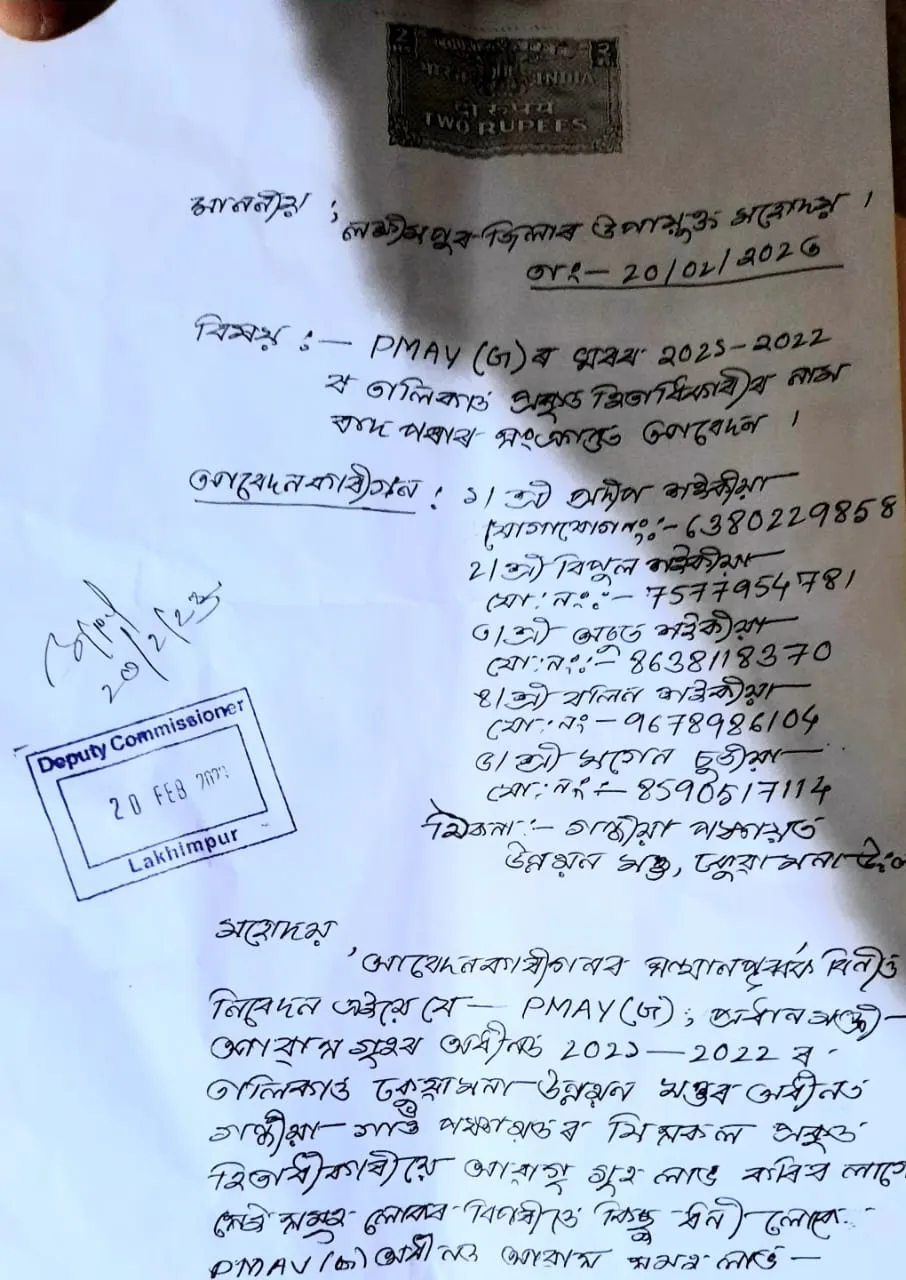 2 २
INDIA
दो रुपये
TWO RUPEES
মাননীয় ;
লক্ষীমপুৰ জিলাৰ উপায়ুক্ত মহোদয় ।
তাং— 20/02/202৩
বিষয় :— PMAY (G)ৰ ঘৰৰ 2021-2022
ৰ তালিকাত প্ৰকৃত হিতাধিকাৰীৰ নাম
বাদ পৰাৰ সংক্ৰান্তত আবেদন ।
আবেদনকাৰীগন : ১। শ্ৰী প্ৰদীপ শইকীয়া
যোগাযোগ নং:- 6380229858
2। শ্ৰী বিপুল শইকীয়া
যো: নং:- 7577954781
৩। শ্ৰী অচ্যুত শইকীয়া
যো: নং:- 8638118370
৪। শ্ৰী বলিন শইকীয়া
যো: নং - 9678986104
৫। শ্ৰী মগেন চুতীয়া
যো: নং - 8590517114
ঠিকনা :- গান্ধীয়া পঞ্চায়ত
উন্নয়ন খণ্ড,
20/2/23
Deputy Commissioner
20 FEB 2023
Lakhimpur
মহোদয়,
আবেদনকাৰীগনৰ সন্মানপূৰ্ব্বক বিনীত
নিবেদন এইয়ে যে — PMAY (G) ; প্ৰধান মন্ত্ৰী —
আবাস গৃহৰ অধীনত 2021—2022 ৰ
তালিকাত উন্নয়ন খণ্ডৰ অধীনত
গান্ধীয়া গাওঁ পঞ্চায়তৰ যিসকল প্ৰকৃত
হিতাধীকাৰীয়ে আবাস গৃহ লাভ কৰিব লাগে
সেই সমূহ লোকৰ বিপৰীতে কিছু ধনী লোকে
PMAY (G) অধীনত আবাস সমূহ লাভ —